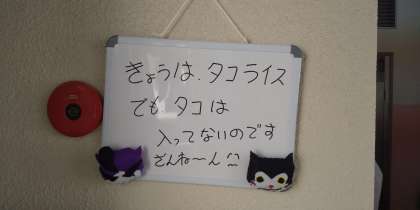 きょうは、タコライス
でも タコは
入ってないのです
ざんね〜ん^^